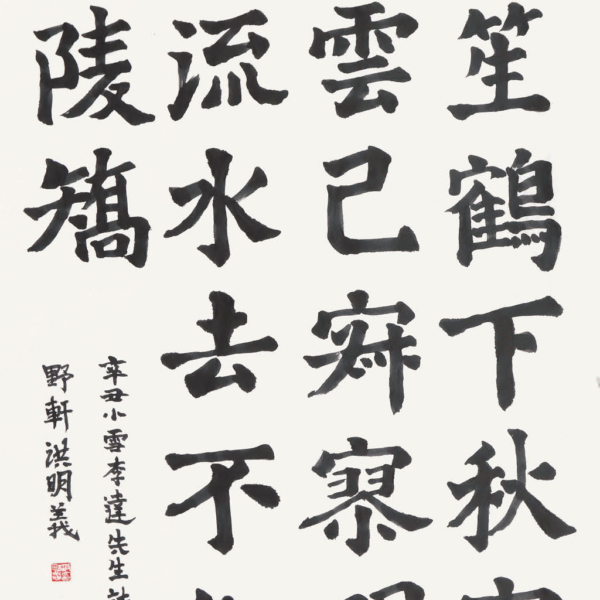 笙鶴下秋
雲己寂寥
流水去不
陵矯
辛丑小雪李達先生
野軒洪明義